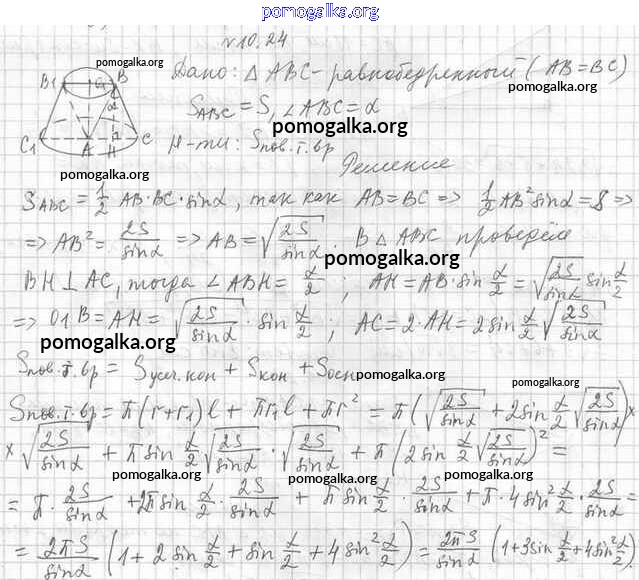 pomogalka.org
№10.24
pomogalka.org
Дано: △ABC - равнобедренный (AB=BC)
pomogalka.org
S_ABC = S, ∠ABC = α
pomogalka.org
Н-ти: Sпов.т.вр
Решение
B1 O1 B α
C1 A H C
S_ABC = 1/2 AB·BC·sinα, так как AB=BC => 1/2 AB² sinα = S =>
pomogalka.org
=> AB² = 2S/sinα => AB = √(2S/sinα). В △ABC проведём
pomogalka.org
BH⊥AC, тогда ∠ABH = α/2 ; AH = AB·sin α/2 = √(2S/sinα) sin α/2
=> O1B = AH = √(2S/sinα) · sin α/2 ; AC = 2·AH = 2sin α/2 √(2S/sinα)
pomogalka.org
Sпов.т.вр = Sусеч.кон + Sкон + Sосн
pomogalka.org
pomogalka.org
Sпов.т.вр = π(r+r1)l + πr1l + πr² = π(√(2S/sinα) + 2sin α/2 √(2S/sinα))×
× √(2S/sinα) + π sin α/2 √(2S/sinα) · √(2S/sinα) + π(2sin α/2 √(2S/sinα))² =
pomogalka.org pomogalka.org pomogalka.org
= π · 2S/sinα + 2π sin α/2 · 2S/sinα + π sin α/2 · 2S/sinα + π·4sin² α/2 · 2S/sinα =
pomogalka.org pomogalka.org pomogalka.org
= 2πS/sinα (1 + 2sin α/2 + sin α/2 + 4sin² α/2) = 2πS/sinα (1+3sin α/2 + 4sin² α/2).